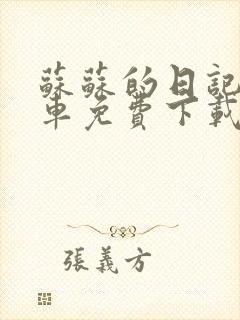 蘇蘇的日記
車免費下載
張義方